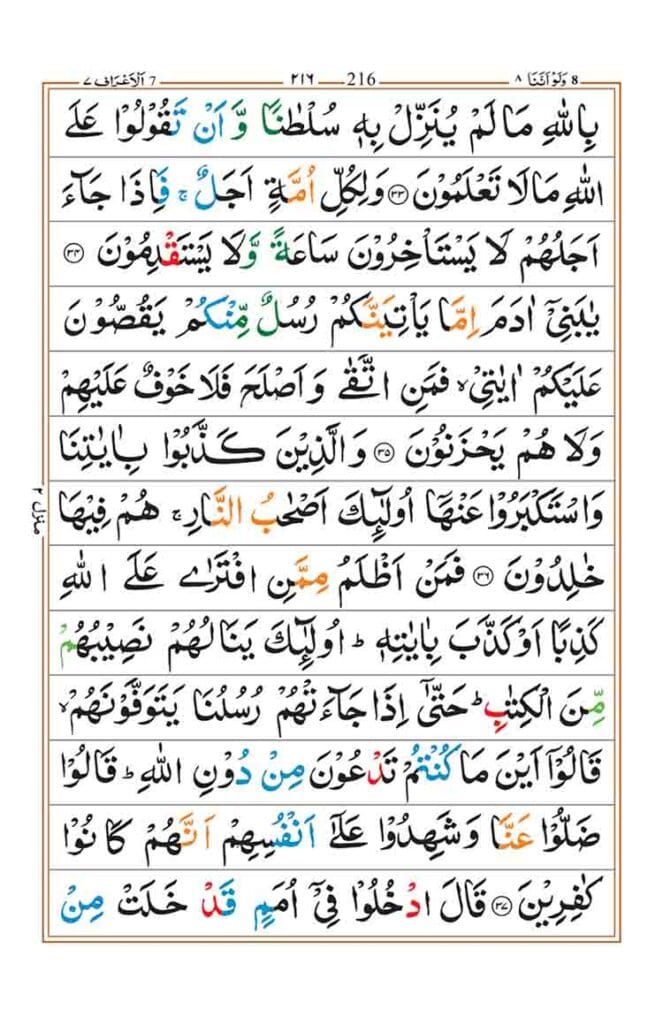 8 وَلَوْ اَنَّنَا ٨ 216 ٢١٦ 7 اَلْاَعْرَاف ٧
بِاللّٰهِ مَا لَمْ يُنَزِّلْ بِهٖ سُلْطٰنًا وَّ اَنْ تَقُوْلُوْا عَلَى
اللّٰهِ مَا لَا تَعْلَمُوْنَ ﴿۳۳﴾ وَلِكُلِّ اُمَّةٍ اَجَلٌ ۚ فَاِذَا جَآءَ
اَجَلُهُمْ لَا يَسْتَاْخِرُوْنَ سَاعَةً وَّلَا يَسْتَقْدِمُوْنَ ﴿۳۴﴾
يٰبَنِيْٓ اٰدَمَ اِمَّا يَاْتِيَنَّكُمْ رُسُلٌ مِّنْكُمْ يَقُصُّوْنَ
عَلَيْكُمْ اٰيٰتِيْ ۙ فَمَنِ اتَّقٰى وَ اَصْلَحَ فَلَا خَوْفٌ عَلَيْهِمْ
وَلَا هُمْ يَحْزَنُوْنَ ﴿۳۵﴾ وَالَّذِيْنَ كَذَّبُوْا بِاٰيٰتِنَا
وَاسْتَكْبَرُوْا عَنْهَآ اُولٰٓئِكَ اَصْحٰبُ النَّارِ ۚ هُمْ فِيْهَا
خٰلِدُوْنَ ﴿۳۶﴾ فَمَنْ اَظْلَمُ مِمَّنِ افْتَرٰى عَلَى اللّٰهِ
كَذِبًا اَوْ كَذَّبَ بِاٰيٰتِهٖ ؕ اُولٰٓئِكَ يَنَالُهُمْ نَصِيْبُهُمْ
مِّنَ الْكِتٰبِ ؕ حَتّٰٓى اِذَا جَآءَتْهُمْ رُسُلُنَا يَتَوَفَّوْنَهُمْ ۙ
قَالُوْٓا اَيْنَ مَا كُنْتُمْ تَدْعُوْنَ مِنْ دُوْنِ اللّٰهِ ؕ قَالُوْا
ضَلُّوْا عَنَّا وَ شَهِدُوْا عَلٰٓى اَنْفُسِهِمْ اَنَّهُمْ كَانُوْا
كٰفِرِيْنَ ﴿۳۷﴾ قَالَ ادْخُلُوْا فِيْٓ اُمَمٍ قَدْ خَلَتْ مِنْ
منزل ٢